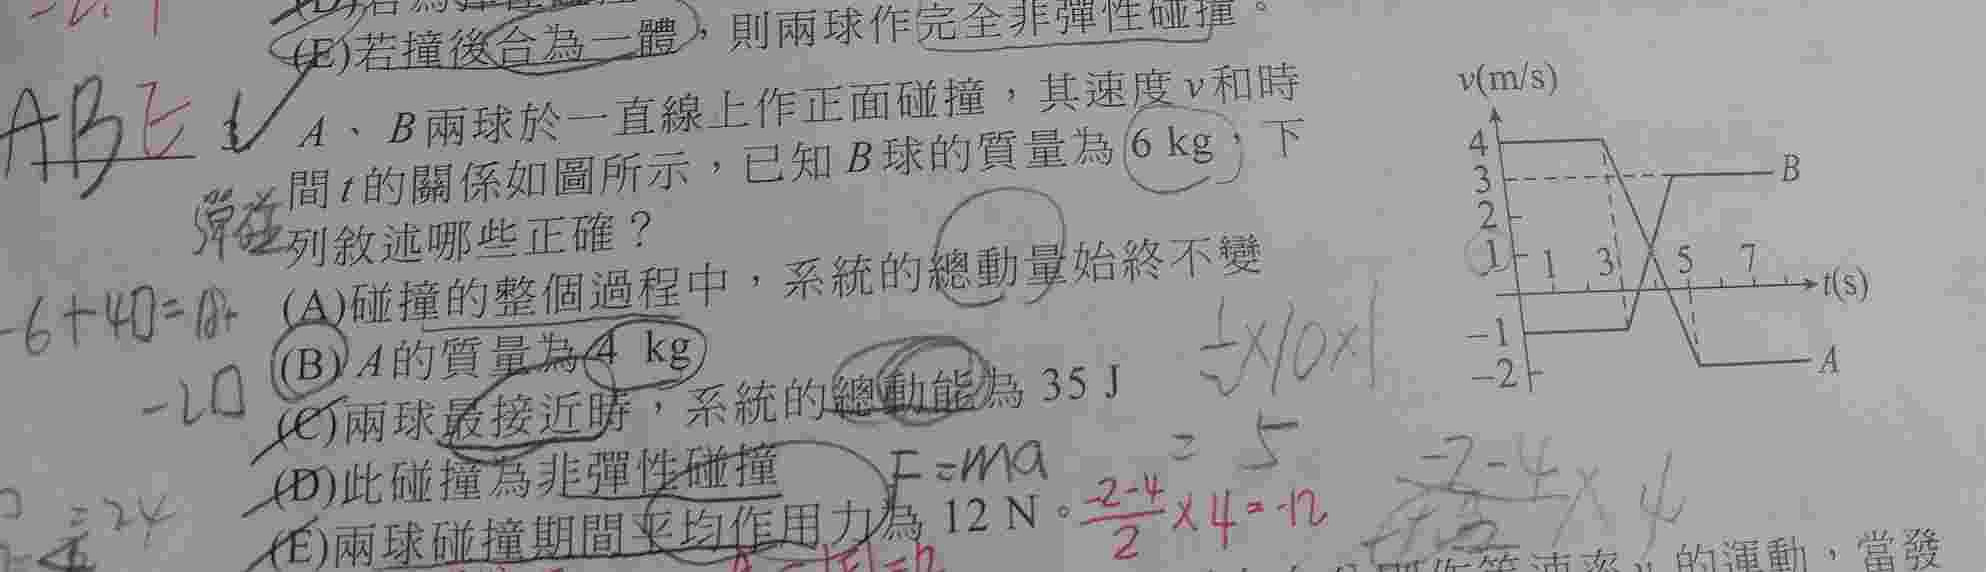 (E)若撞後合為一體，則兩球作完全非彈性碰撞。
ABE
A、B兩球於一直線上作正面碰撞，其速度v和時
間t的關係如圖所示，已知B球的質量為6 kg，下
列敘述哪些正確？
彈碰
(A)碰撞的整個過程中，系統的總動量始終不變
(B)A的質量為4 kg
(C)兩球最接近時，系統的總動能為 35 J
(D)此碰撞為非彈性碰撞
(E)兩球碰撞期間平均作用力為 12 N。
-6+4□=18+
-2□
=24
F=ma
×10×1
= 5
-2-4/2 × 4 = -12
-2-4
× 4
v(m/s)
4
3
2
1
1 3 5 7
t(s)
-1
-2
B
A
的運動，當發